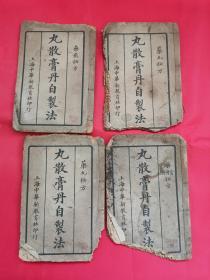 丸散膏丹自製法
上海中華新教育社印行
藥丸秘方
丸散膏丹自製法
上海中華新教育社印行
藥丸秘方
丸散膏丹自製法
上海中華新教育社印行
秘方
丸散膏丹自製法
上海中華新教育社印行